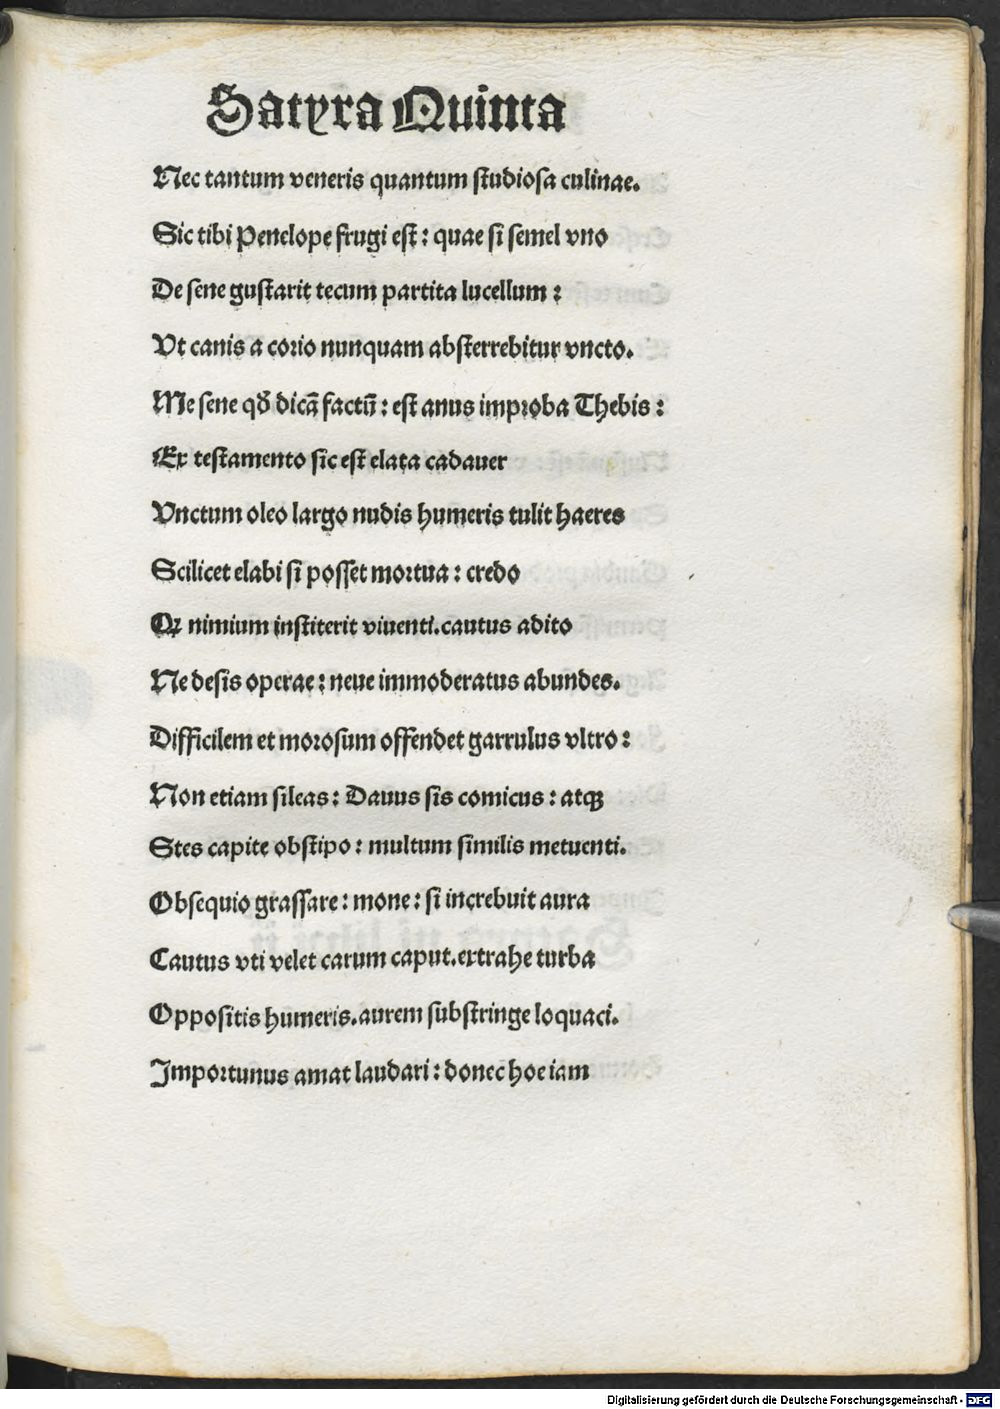 Satyra Quinta
Nec tantum veneris quantum ſtudioſa culinae.
Sic tibi Penelope frugi eſt: quae ſi ſemel vno
De ſene guſtarit tecum partita lucellum:
Vt canis a corio nunquam abſterrebitur vncto.
Me ſene qđ dicã factũ: eſt anus improba Thebis:
Ex teſtamento ſic eſt elata cadauer
Vnctum oleo largo nudis humeris tulit haeres
Scilicet elabi ſi poſſet mortua: credo
Qꝛ nimium inſtiterit viuenti.cautus adito
Ne deſis operae: neue immoderatus abundes.
Difficilem et moroſum offendet garrulus vltro:
Non etiam ſileas: Dauus ſis comicus: atqꝫ
Stes capite obſtipo: multum ſimilis metuenti.
Obſequio graſſare: mone: ſi increbuit aura
Cautus vti velet carum caput.extrahe turba
Oppoſitis humeris.aurem ſubſtringe loquaci.
Importunus amat laudari: donec hoe iam
Digitalisierung gefördert durch die Deutsche Forschungsgemeinschaft - DFG